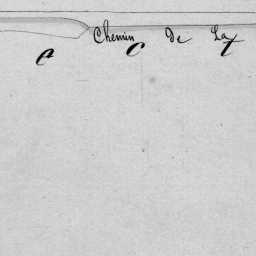 Chemin de La
C C t